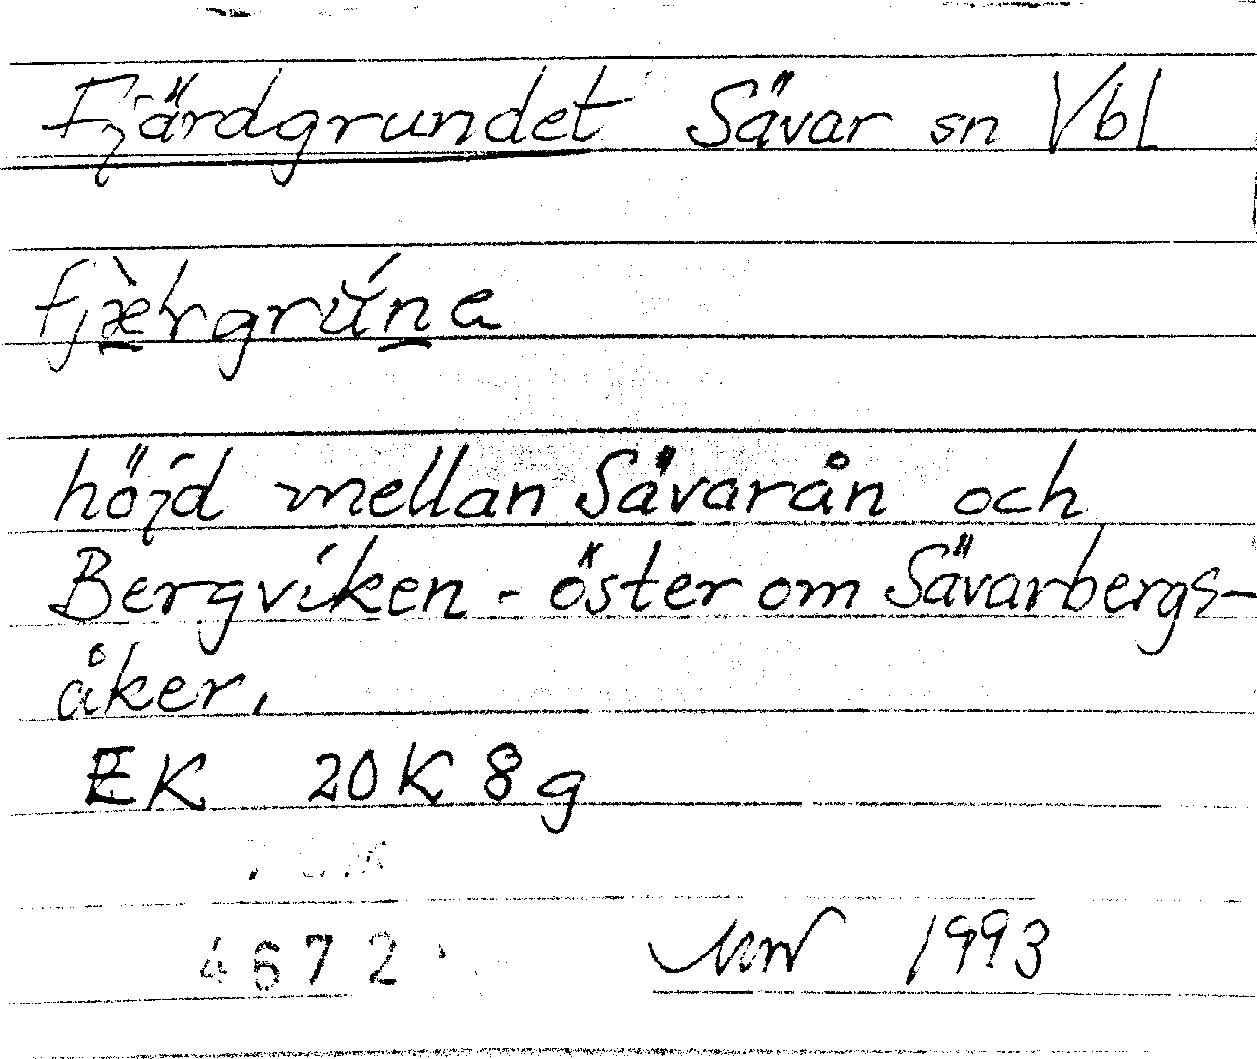 Fjärdgrundet Sävar sn Vbl
höjd mellan Sävarån och
Bergviken - öster om Sävarbergs-
åker.
EK 20K 8g
4672
1993